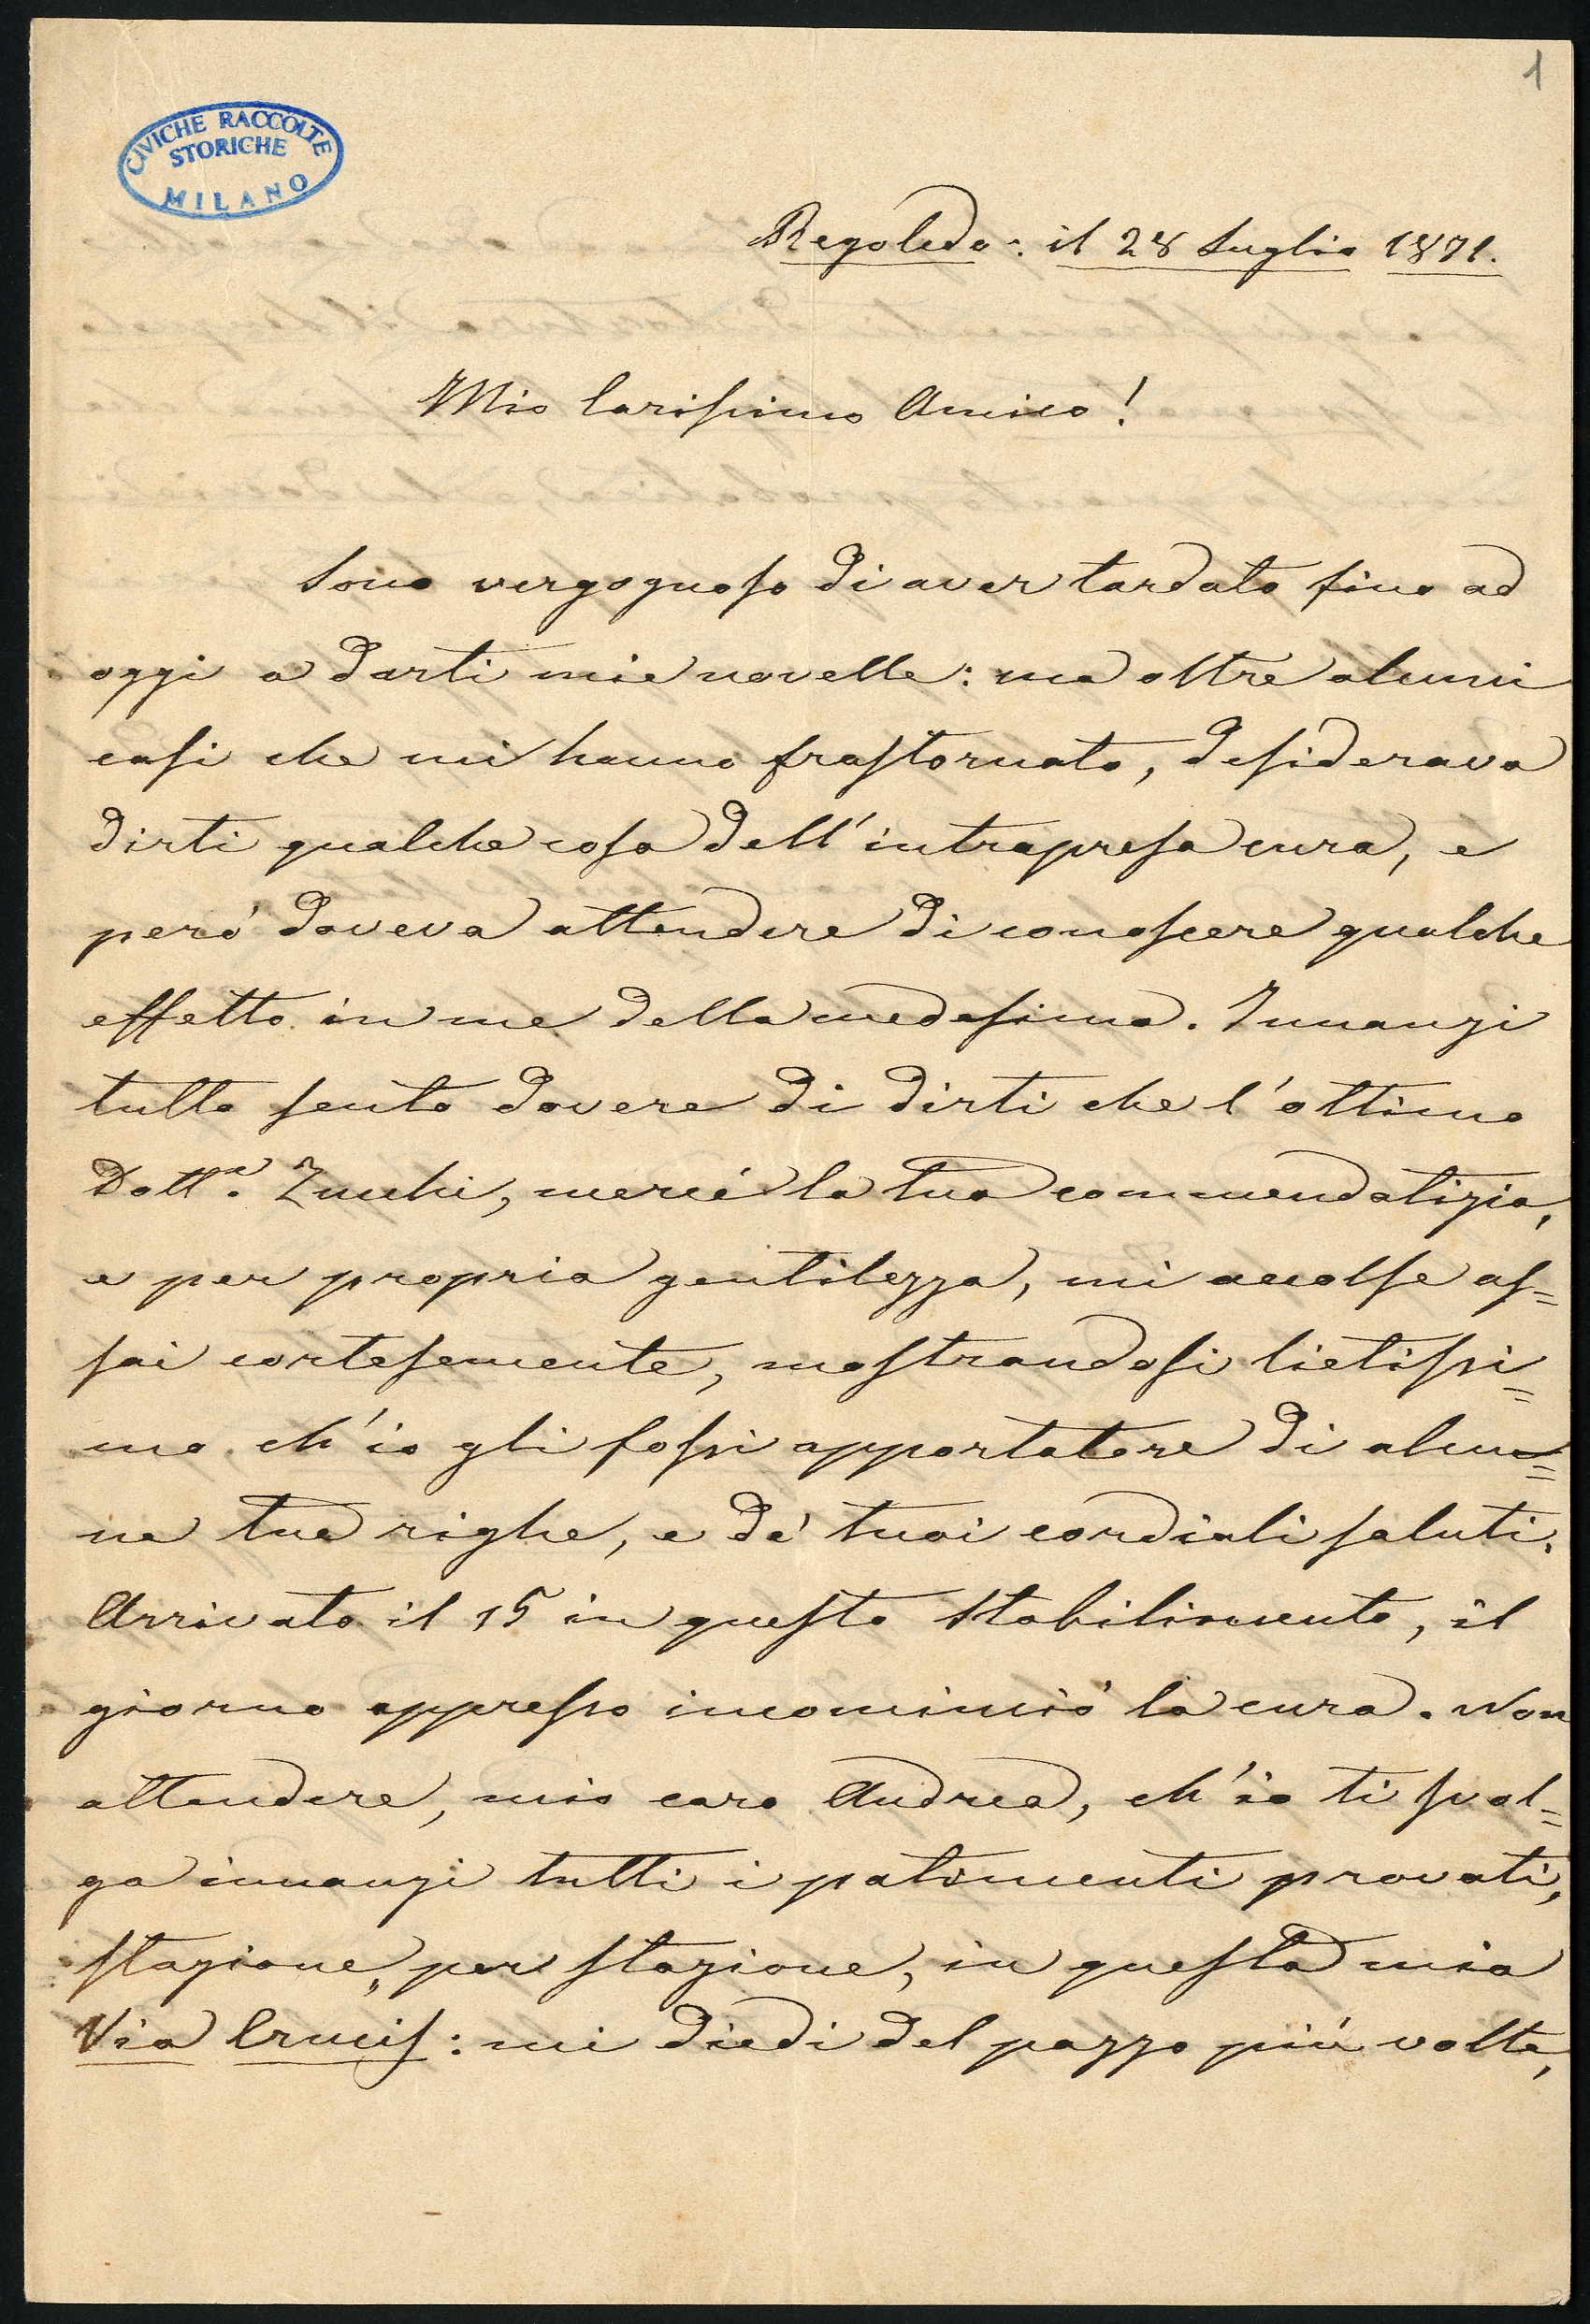 1
CIVICHE RACCOLTE
STORICHE
MILANO
Regoledo: il 28 Luglio 1871.
Mio Carissimo Amico!
Sono vergognoso di aver tardato fino ad
oggi a darti mie novelle: ma oltre alcuni
casi che mi hanno frastornato, desiderava
dirti qualche cosa dell'intrapresa cura, e
però doveva attendere di conoscere qualche
effetto in me della medesima. Innanzi
tutto sento dovere di dirti che l'ottimo
Dott.e Zucchi, mercé la tua commendatizia,
e per propria gentilezza, mi accolse as=
sai cortesemente, mostrandosi lietissi=
mo ch'io gli fossi apportatore di alcu=
ne tue righe, e de' tuoi cordiali saluti.
Arrivato il 15 in questo Stabilimento, il
giorno appresso incominciò la cura. Non
attendere, mio caro Andrea, ch'io ti svol=
ga innanzi tutti i patimenti provati,
stazione, per stazione, in questa mia
Via Crucis: mi diedi del pazzo più volte,